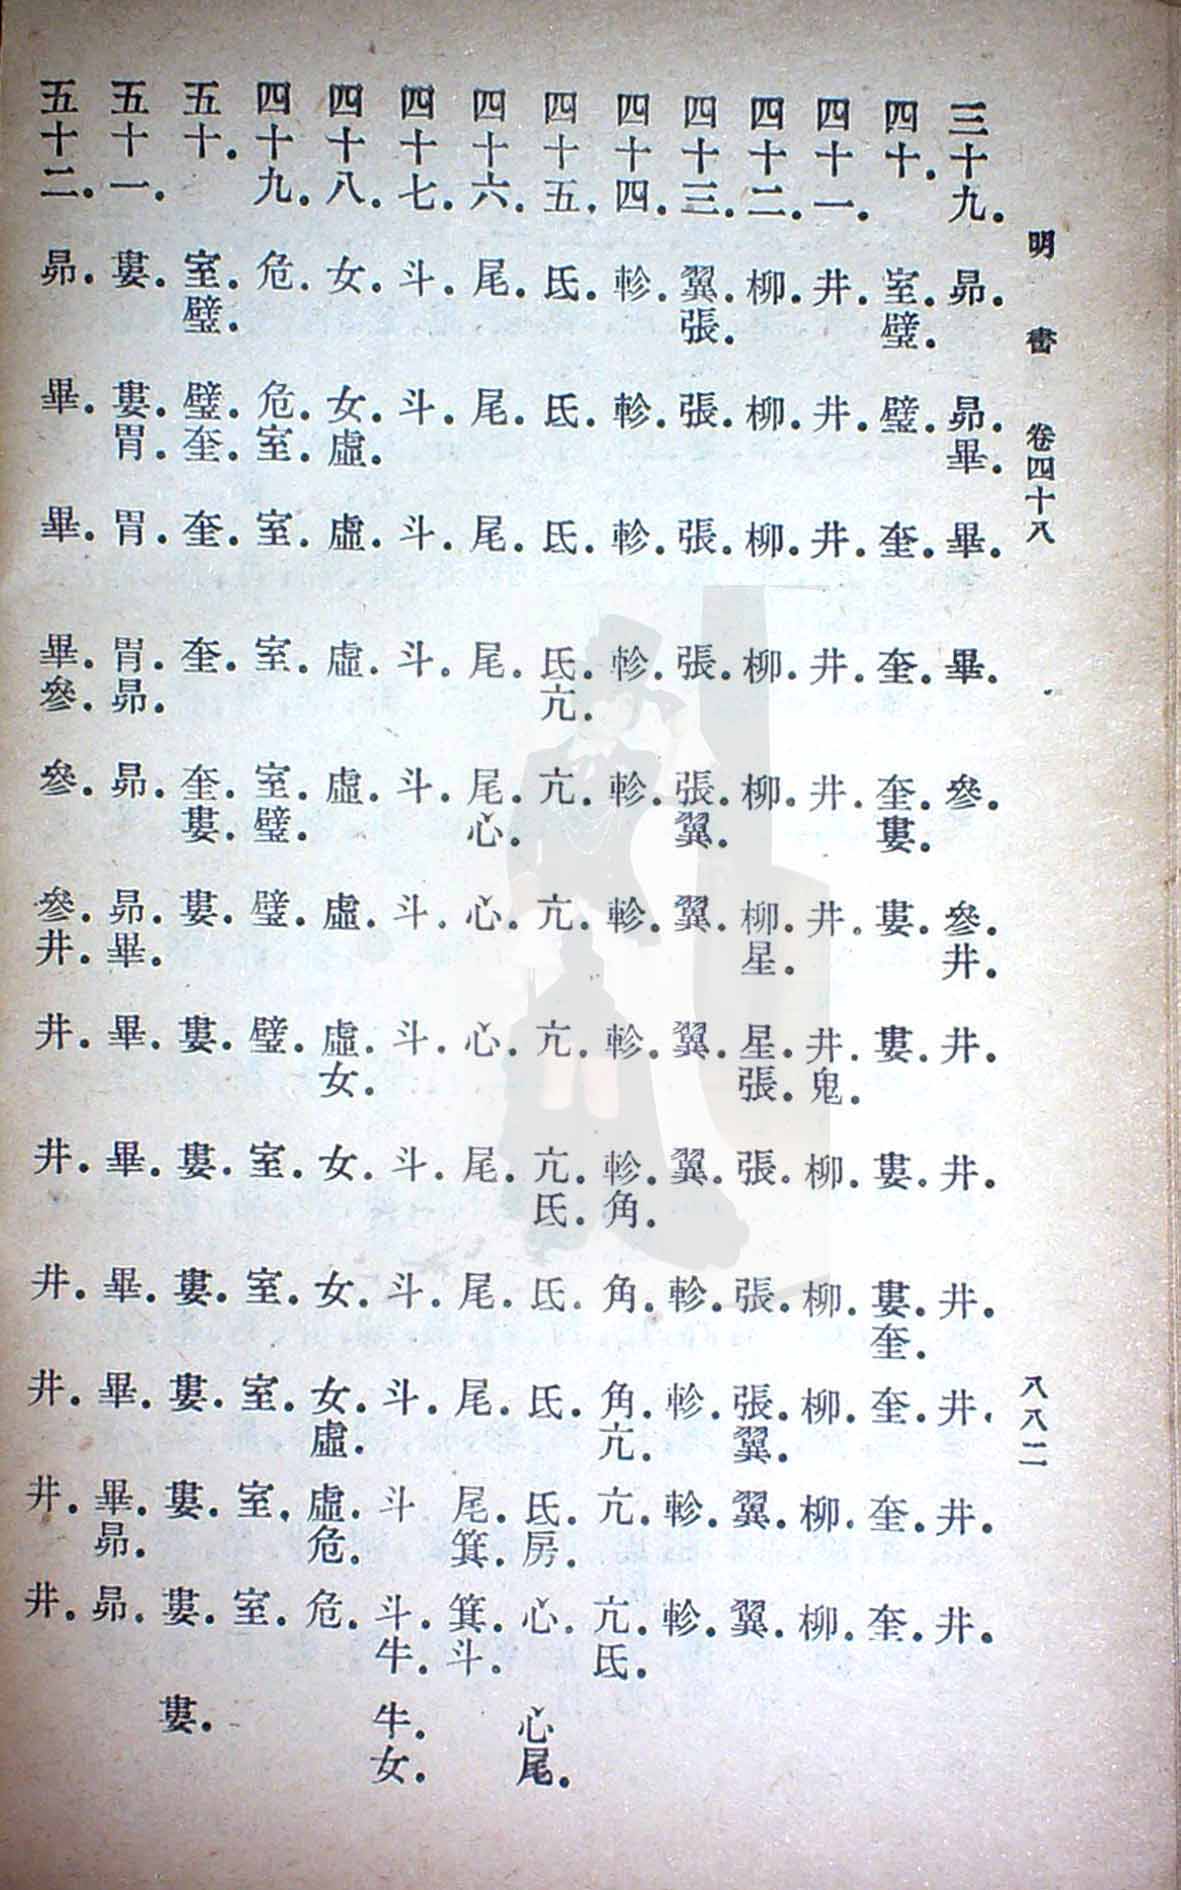 明書 卷四十八 八八二
三十九. 昴. 昴.畢. 畢. 畢. 參. 參.井. 井. 井. 井. 井. 井. 井.
四十. 室.璧. 璧. 奎. 奎. 奎.婁. 婁. 婁. 婁. 婁.奎. 奎. 奎. 奎.
四十一. 井. 井. 井. 井. 井. 井. 井.鬼. 柳. 柳. 柳. 柳. 柳.
四十二. 柳. 柳. 柳. 柳. 柳. 柳.星. 星.張. 張. 張. 張.翼. 翼. 翼.
四十三. 翼.張. 張. 張. 張. 張.翼. 翼. 翼. 翼. 軫. 軫. 軫. 軫.
四十四. 軫. 軫. 軫. 軫. 軫. 軫. 軫. 軫.角. 角. 角.亢. 亢. 亢.氐.
四十五. 氐. 氐. 氐. 氐.亢. 亢. 亢. 亢. 亢.氐. 氐. 氐. 氐.房. 心. 心尾.
四十六. 尾. 尾. 尾. 尾. 尾.心. 心. 心. 尾. 尾. 尾. 尾.箕. 箕.斗.
四十七. 斗. 斗. 斗. 斗. 斗. 斗. 斗. 斗. 斗. 斗. 斗 斗.牛. 牛.女.
四十八. 女. 女.虛. 虛. 虛. 虛. 虛. 虛.女. 女. 女. 女.虛. 虛.危. 危.
四十九. 危. 危.室. 室. 室. 室.璧. 璧. 璧. 室. 室. 室. 室. 室.
五十. 室.璧. 璧.奎. 奎. 奎. 奎.婁. 婁. 婁. 婁. 婁. 婁. 婁. 婁. 婁.
五十一. 婁. 婁.胃. 胃. 胃.昴. 昴. 昴.畢. 畢. 畢. 畢. 畢. 畢.昴. 昴.
五十二. 昴. 畢. 畢. 畢.參. 參. 參.井. 井. 井. 井. 井. 井. 井.